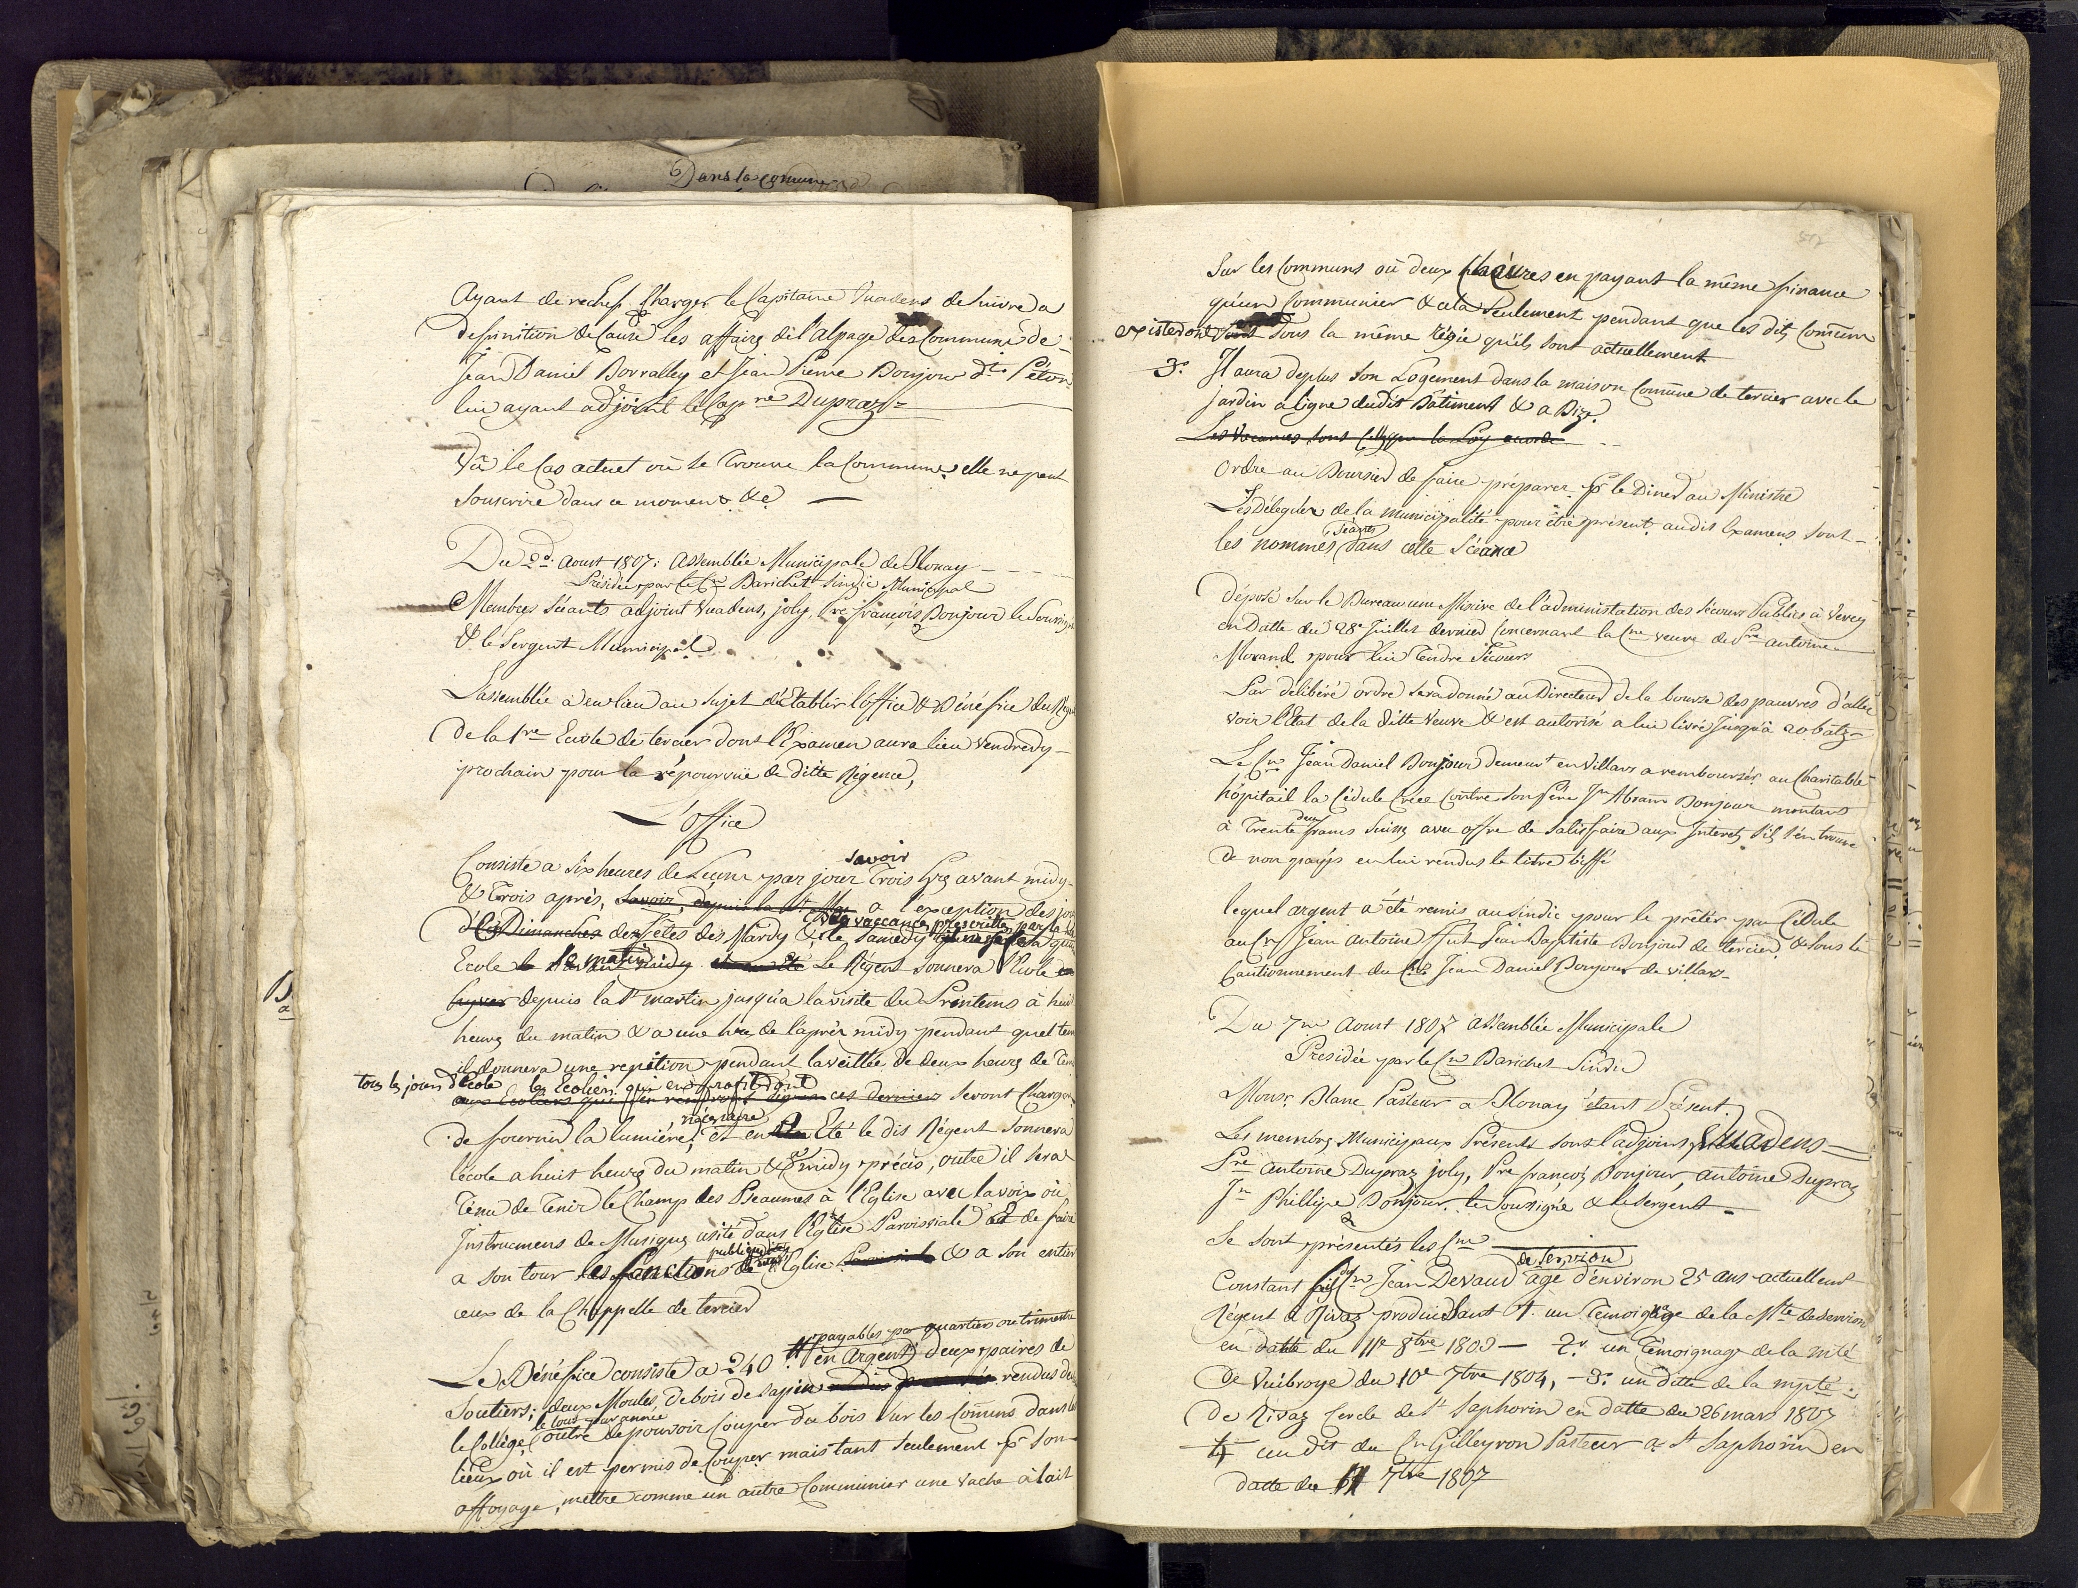 Dans la comune
Ayant de rechef Charger le Capitaine Vuadens de suivre a
deffinition de Cause les affaires de l'alpage des Communs de
Jean Daniel Borralley et Jean Pierre Bonjour dt. Péton
lui ayant adjoint le Capne Dupraz
Vû le Cas actuel où se trouve la Commune, elle ne peut
souscrire dans ce moment &c
Du 2d. Aoust 1807: Assemblée Municipale de Blonay
Présidée par le Cn Barichet Sindic Municipal
Membres Séants adjoint Vuadens, joly, Pre françois Bonjour le Soussigné
& le Sergent Municipal
L'assemblée a eu lieu au sujet d'établir l'office & Bénéfice du Régent
De la 1re Ecole de tercier dont l'Examen aura lieu Vendredy
prochain pour la répourvüe de ditte Régence,
L'office
savoir
Consiste a six heures de Leçons par jour Trois hrs avant midy
& Trois après, savoir, depuis la St. a l'exception des jours
des vaccances prescrittes par la loi
des Dimanches des fêtes des Mardy & le Samedy
matin
Ecole le Régent sonnera l'Ecole en
hyver depuis la St martin jusqu'a la visite du Printems à huit
heures du matin & a une hre de l'après midy pendant quel tems
il donnera une repetion pendant la veillée de deux heures de Tems
tous les jours d'Ecole les Ecoliers qui en profitront
aux Ecoliers qui ces derniers seront Chargés
nécessaire
de fournir la lumière, et en Eté le dit Régent sonnera
l'école a huit heures du matin & midy précis, outre il sera
Tenu de Tenir le Champ des Pseaumes à l'Eglise avec la voix où
Instrumens de Musique usité dans l'Eglise Paroissiale & de faire
publiques
a son tour les fonctions de l'Eglise & a son entier
ceux de la Chappelle de tercier
payables par quartier ou trimestre
Le Bénéfice consiste a 240 en Argent deux paires de
Souliers, deux Moules de bois de sapin rendus de
le tout par année
le Collège, outre de pouvoir Couper du bois sur les Comuns dans les
lieux où il est permis de Couper mais tant seulement pr son
affoyage, mettre comme un autre Communier une vache à lait
Sur les Communs où deux Chèvres en payant la même finance
qu'un Communier & cela seulement pendant que les dits Comuns
existeront sous la même régie qu'ils sont actuellement
3. Il aura deplus son Logement dans la maison Comune de tercier avec le
jardin a ligne dudit Bâtiment & a Bize.
Les Vacances sont celles que la Loy acorde
Ordre au Boursier de faire préparer pr le Diner au Ministre
Les Délégués de la municipalité pour être présent audit Examens sont
séants
les nommés dans cette Séance
déposé sur le Bureau une Missive de l'administation des Secours Publics à Vevey
en Datte du 28e Juillet dernier Concernant la Cne veuve de Pre antoine
Morand pour lui Tendre Secours
Par délibéré ordre sera donné au Directeur de la bourse des pauvres d'aller
voir l'État de la ditte Veuve & est autorisé a lui livré Jusqu'à 20 batz
Le Cn Jean Daniel Bonjour demeurt en Villars a remboursér au Charitable
hôpitail la Cédule Créée Contre son Père Jn Abram Bonjour montant
deux
à Trente frans Suisse avec offre de Satisfaire aux Interets s'il s'en trouve
de non payés en lui rendus le titre biffé
lequel argent a été remis au Sindic pour le prêter par Cédule
au Cn Jean Antoine ffut Jean Baptiste Bonjour de tercier, & sous le
Cautionnement du Cn Jean Daniel Bonjour de villars
Du 7me Aoust 1807 assemblée Municipale
Présidée par le Cn Barichet Sindic
Monsr. Blanc Pasteur a Blonay étant Présent.
Les membres Municipaux Présents sont l'adjoint Vuadens
Pre Antoine Dupraz joly, Pre françois Bonjour, antoine Dupraz
Jn Phillipe Bonjour, le Soussigné & le Sergent
Se sont présentés les Cns
de Servion
Constant fils Jean Devaud age d'environ 25 ans actuellemt
Régent à Rivaz produisant 1. un Temoignage de la Mté de Servion
en datte du 11e 8bre 1803 — 2. un Témoignage de la mité
De Vuibroye du 10e 7bre 1804, — 3. un ditte de la mpté
de Rivaz Cercle de St Saphorin en datte du 26 mars 1807
4 un dit du Cn Gilleyron Pasteur a St Saphorin en
datte du 7bre 1807